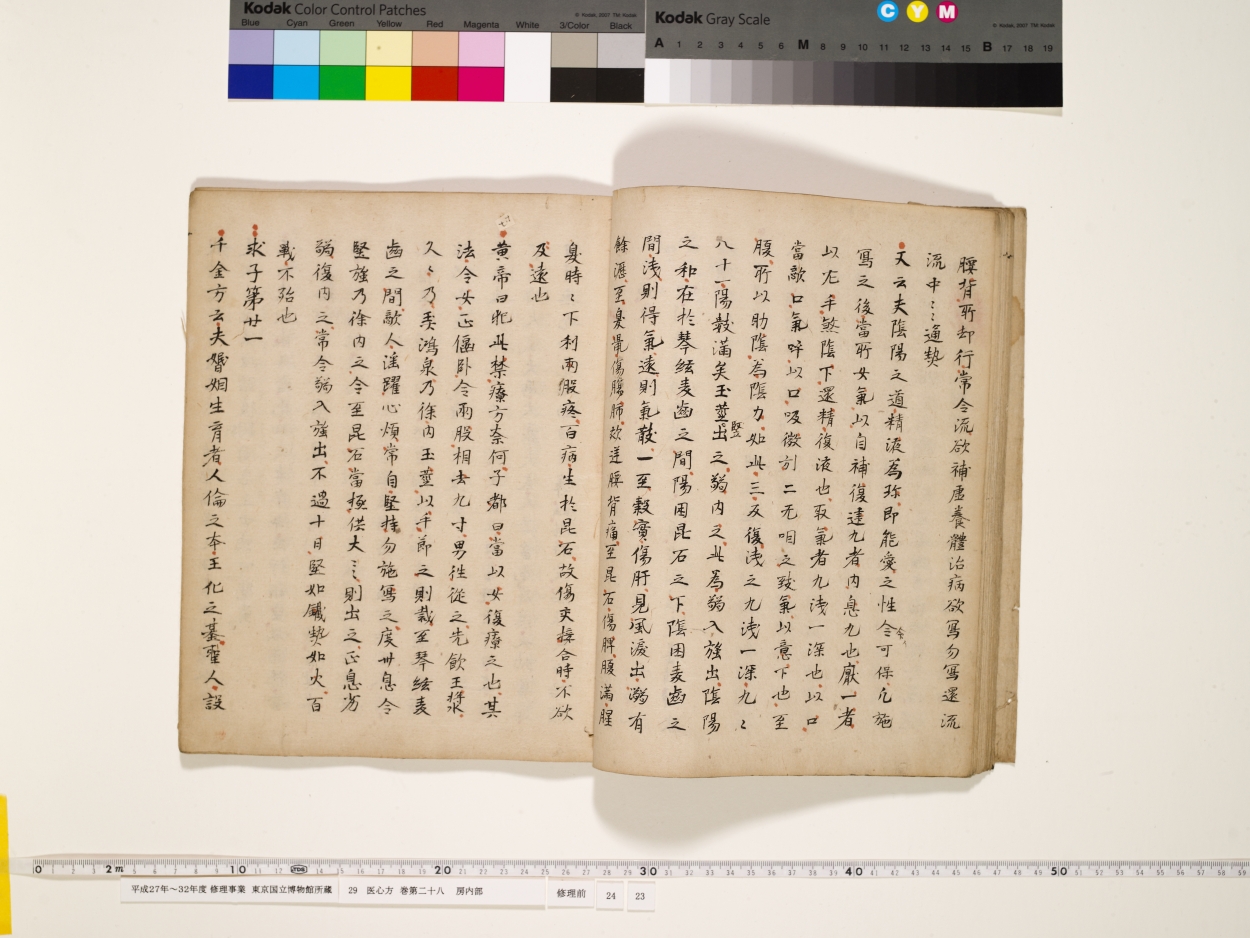 Kodak Color Control Patches
© Kodak, 2007 TM: Kodak
Blue Cyan Green Yellow Red Magenta White 3/Color Black
Kodak Gray Scale
C Y M
© Kodak, 2007 TM: Kodak
A 1 2 3 4 5 6 M 8 9 10 11 12 13 14 15 B 17 18 19
腰背所却行常令流欲補虚養體治病欲寫勿寫還流
流中〻〻通勢
又云夫陰陽之道精液為珎即能愛之性令可保凡施
寫之後當所女氣以自補復建九者内息九也厭一者
以左手煞陰下還精復液也取氣者九淺一深也以口
當敵口氣呼以口吸微引二无咽之致氣以意下也至
腹所以助陰為陰力如此三反復淺之九淺一深九〻
八十一陽數滿矣玉莖堅出之弱内之此為弱入強出陰陽
之和在於琴絃麦齒之間陽困昆石之下陰困麦齒之
間淺則得氣遠則氣散一至穀實傷肝見風淚出溺有
餘瀝至臭鼠傷腸肺欬逆腰背痛至昆石傷脾腹滿腥
臭時〻下利兩股疼百病生於昆石故傷交接合時不欲
及遠也
黄帝曰犯此禁療方奈何子都曰當以女復療之也其
法令女正偃卧令兩股相去九寸男往從之先飲玉漿
久〻乃弄鴻泉乃徐内玉莖以手節之則裁至琴絃麦
齒之間敵人淫躍心煩常自堅持勿施寫之度卅息令
堅強乃徐内之令至昆石當極供大〻〻則出之正息劣
弱復内之常令弱入強出不過十日堅如鐵勢如火百
戰不殆也
求子第廿一
千金方云夫婚姻生育者人倫之本王化之基聖人設
0 2m 10 20 30 40 50
平成27年～32年度 修理事業 東京国立博物館所蔵 29 医心方 巻第二十八 房内部 修理前 24 23